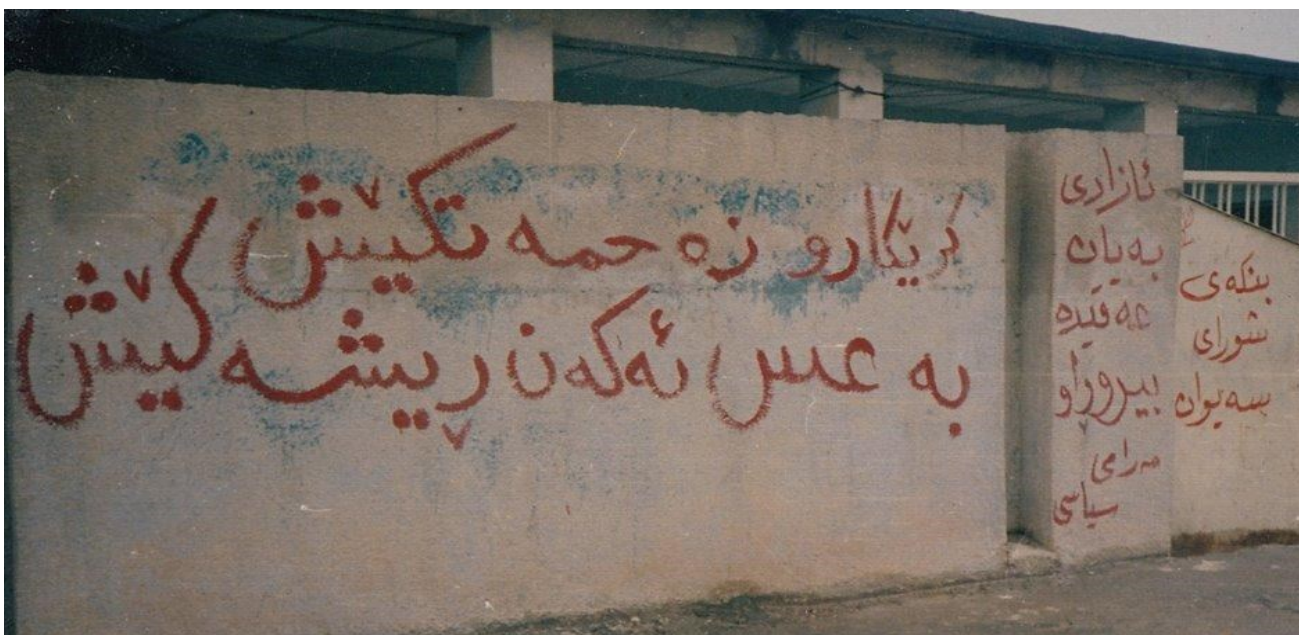 کرێکارو زەحمەتکێش
بە عس ئەکەن ڕیشەکێش
ئازادی
بەیان
عەقیدە
بیروڕاو
مەرامی
سیاسی
بنکەی
شورای
سەیوان